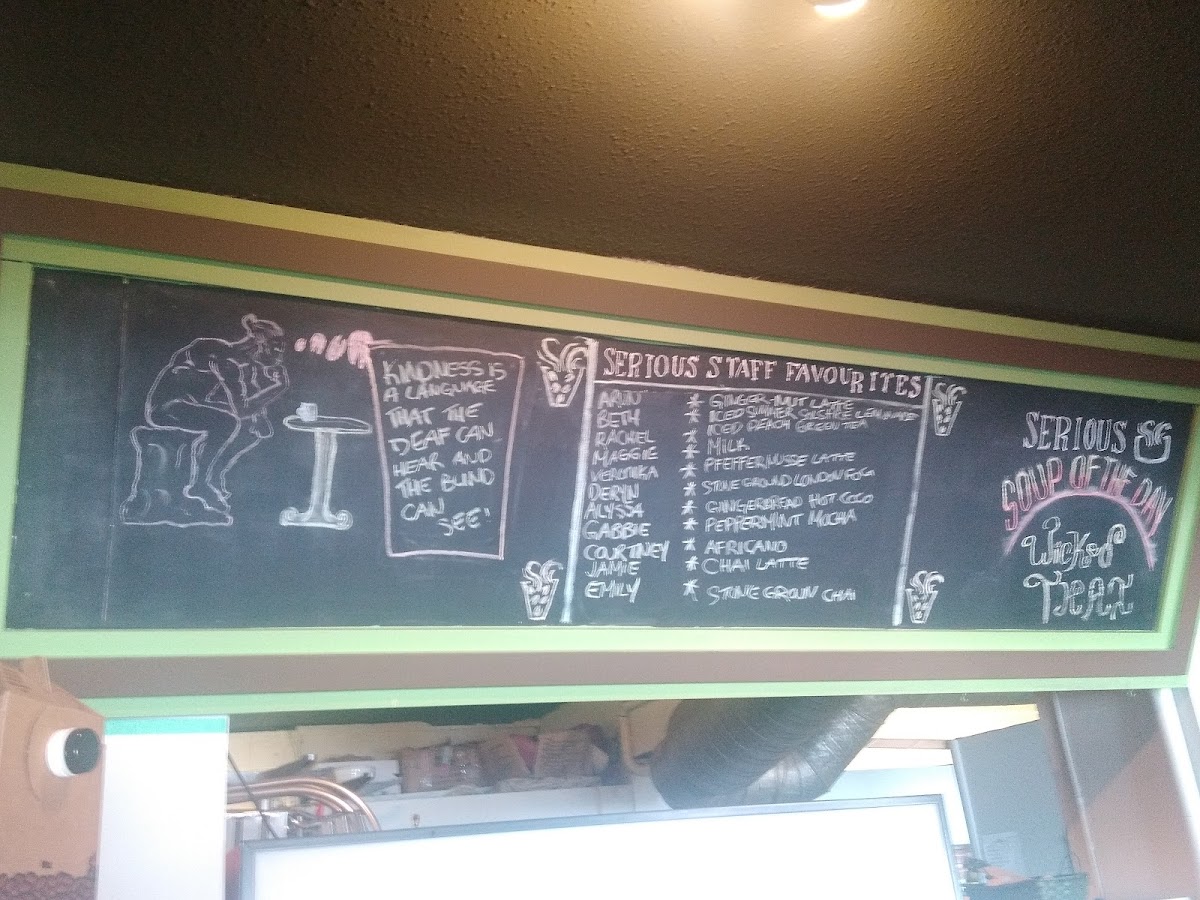 KINDNESS IS
A LANGUAGE
THAT THE
DEAF CAN
HEAR AND
THE BLIND
CAN
SEE'
SERIOUS STAFF FAVOURITES
ARUN * GINGER-NUT LATTE
BETH * ICED SUMMER SOLSTICE LEMONADE
RACHEL * ICED PEACH GREEN TEA
MAGGIE * MILK
VERONIKA * PFEFFERNUSSE LATTE
DERYN * STONE GROUND LONDON FOG
ALYSSA * GINGERBREAD HOT COCO
GABBIE * PEPPERMINT MOCHA
COURTNEY * AFRICANO
JAMIE * CHAI LATTE
EMILY * STONE GROUN CHAI
SERIOUS
SOUP OF THE DAY
Wicked